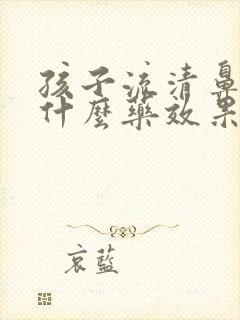 孩子流清鼻
什麼藥效果
哀藍